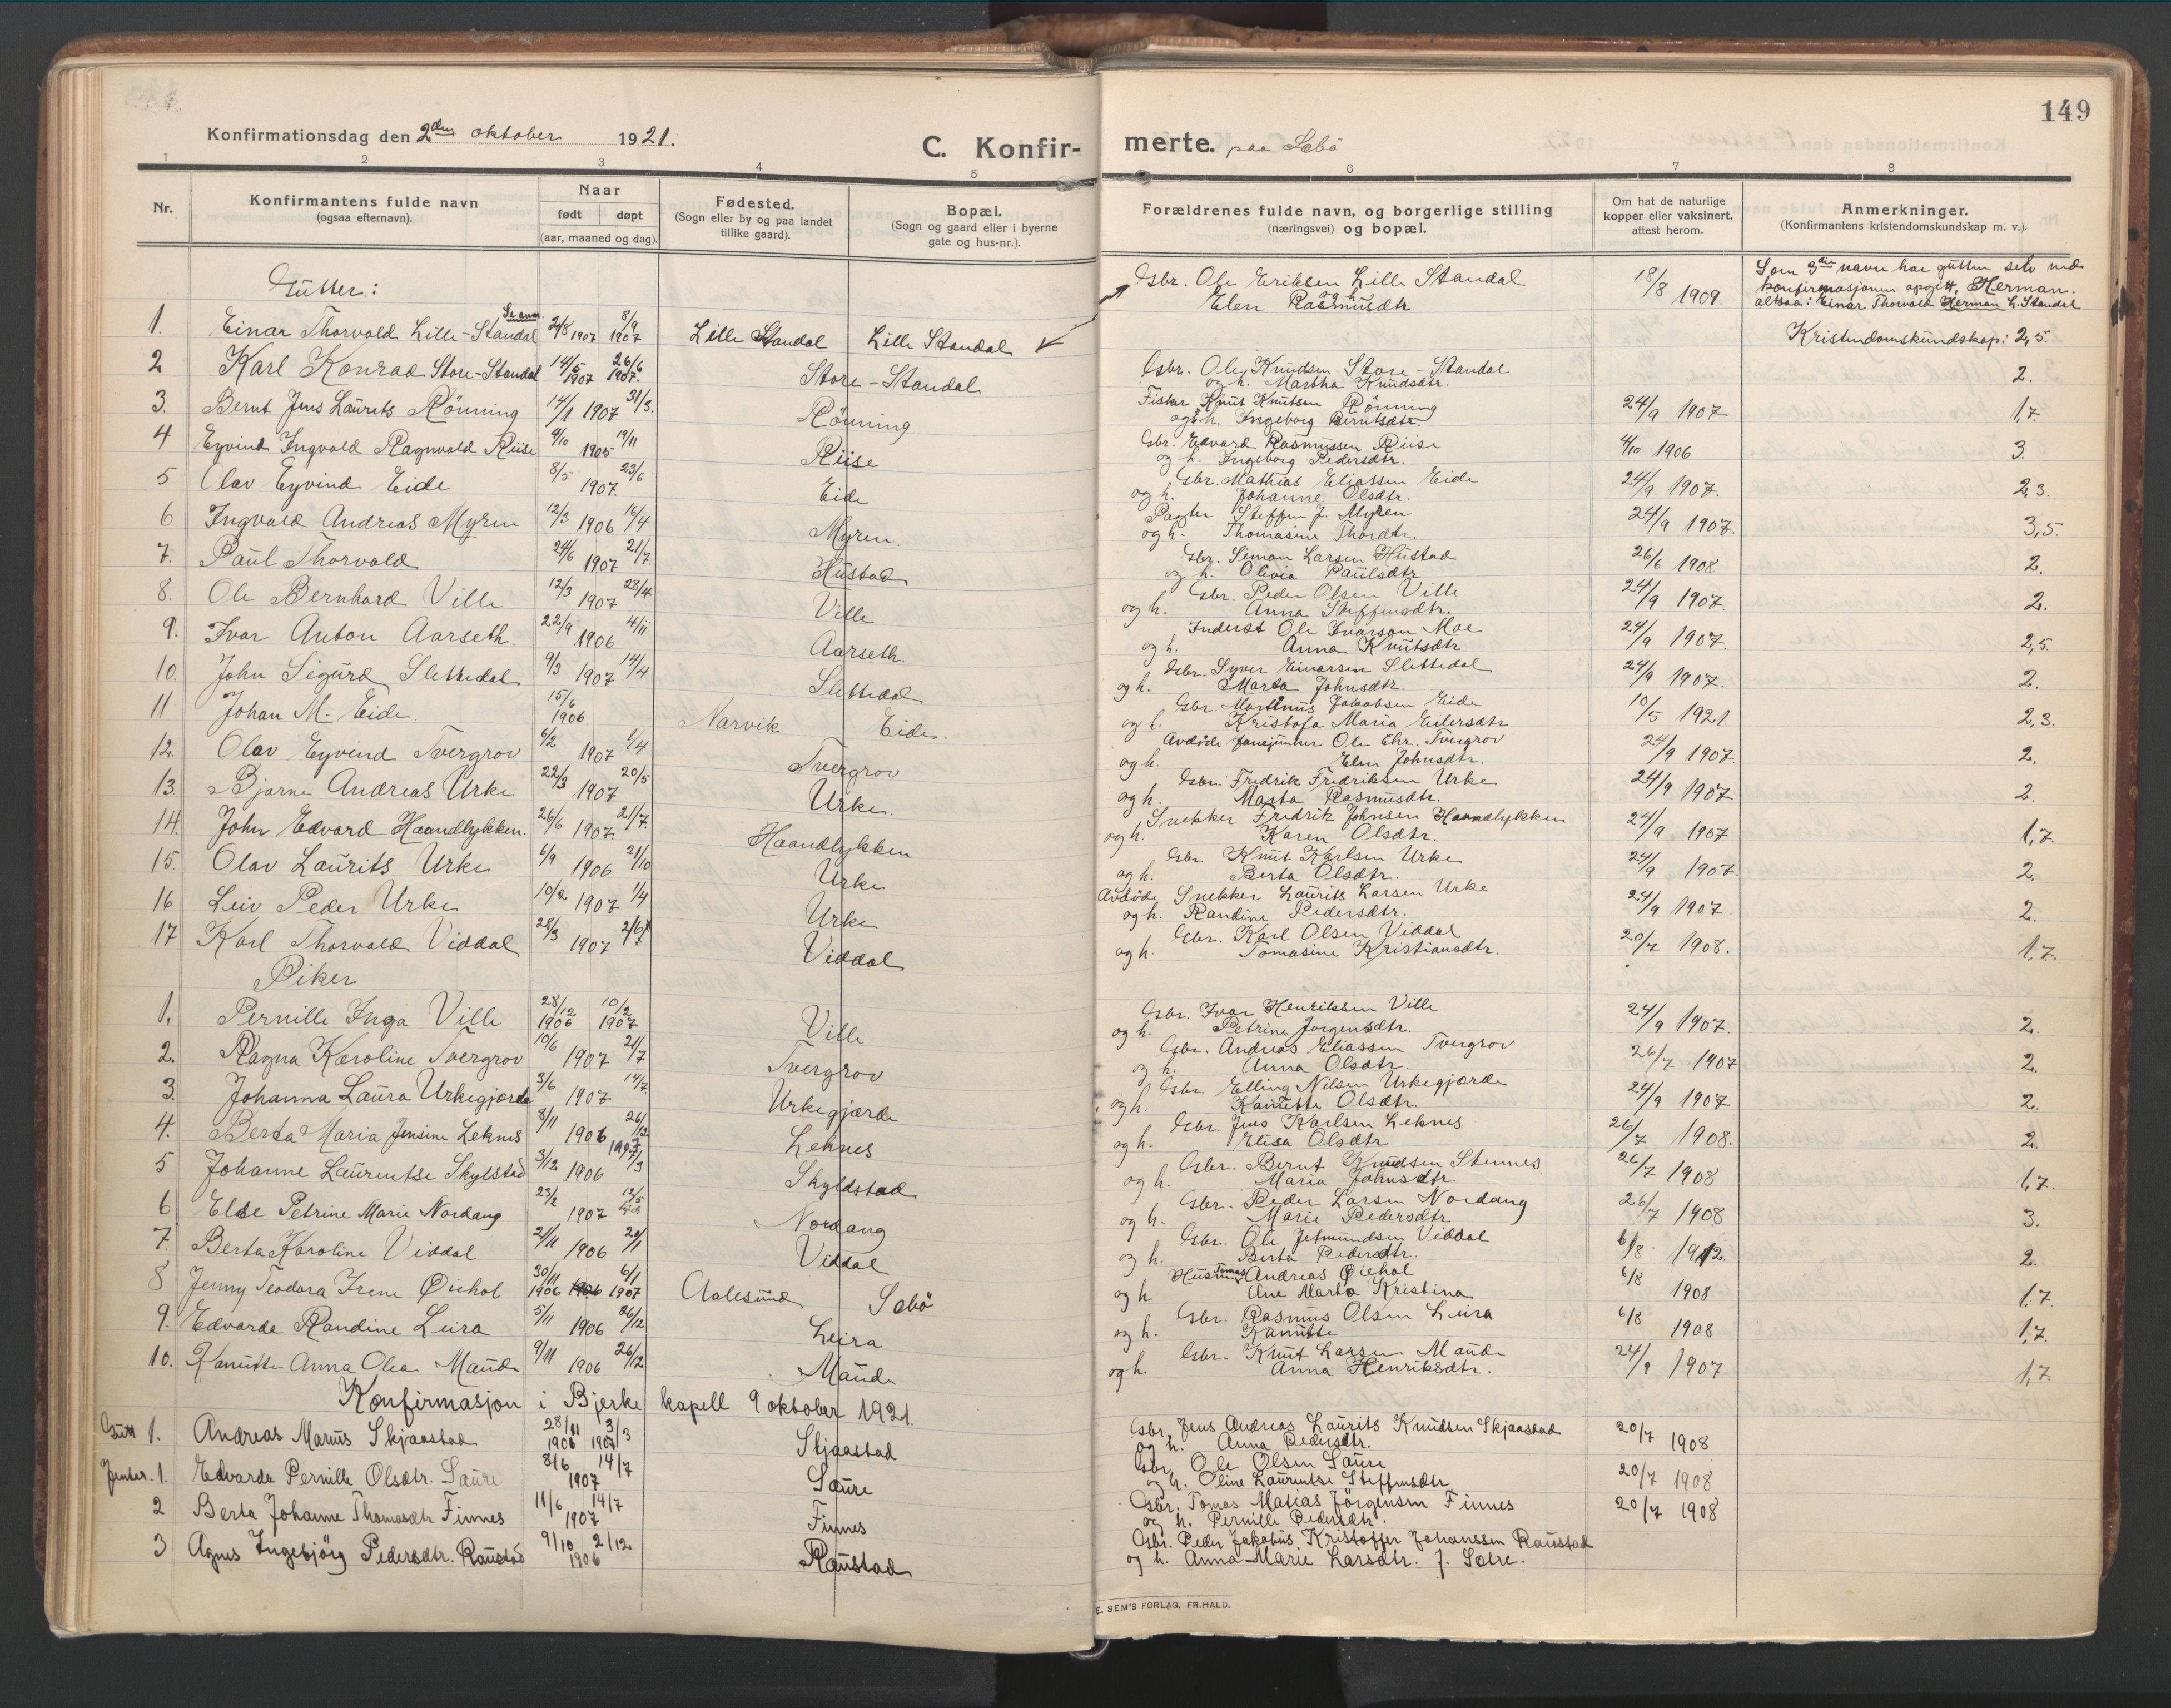 149
Konfirmationsdag den 2den oktober 1921.
C. Konfirmerte. paa Sæbö
1 2 3 4 5 6 7 8
Nr.
Konfirmantens fulde navn
(ogsaa efternavn).
Naar
født døpt
(aar, maaned og dag).
Fødested.
(Sogn eller by og paa landet
tillike gaard).
Bopæl.
(Sogn og gaard eller i byerne
gate og hus-nr.).
Forældrenes fulde navn, og borgerlige stilling
(næringsvei) og bopæl.
Om hat de naturlige
kopper eller vaksinert,
attest herom.
Anmerkninger.
(Konfirmantens kristendomskundskap m. v.).
Gutter:
Se anm.
1. Einar Thorvald Lille-Standal 24/8 1907 8/9 1907 Lille Standal Lille Standal Gbr. Ole Eriksen Lille Standal og h. Elen Rasmusdtr 18/8 1909. Som 3die navn har gutten selv ved
konfirmasjonen opgitt, Herman.
altsaa: Einar Thorvald Herman L. Standal
Kristendomskundskap: 2,5.
2 Karl Konrad Store-Standal 14/5 1907 26/6 1907. Store-Standal Gbr. Ole Knudsen Store-Standal
og h. Martha Knudsdtr. 2.
3. Bernt Jens Laurits Rönning 14/1 1907 31/3. Rönning Fisker Knut Knutsen Rönning
og h. Ingeborg Berntsdtr. 24/9 1907 1,7
4 Eyvind Ingvald Ragnvald Riise 4/10 1905 19/11 Riise Gbr. Edvard Rasmussen Riise
og h. Ingeborg Pedersdtr. 4/10 1906 3.
5 Olav Eyvind Eide 8/5 1907. 23/6 Eide Gbr. Mathias Eliassen Eide
og h. Johanne Olsdtr. 24/9 1907. 2,3.
6 Ingvald Andreas Myren 12/3 1906 16/4 Myren. Pagter Steffen J. Myren
og h. Thomasine Thordtr. 24/9 1907. 3,5.
7. Paul Thorvald 24/6 1907 21/7. Hustad Gbr. Simon Larsen Hustad
og h. Olivia Paulsdtr 26/6 1908 2.
8. Ole Bernhard Ville 12/3 1907 28/4. Ville Gbr. Peder Olsen Ville
og h. Anna Steffensdtr. 24/9 1907. 2.
9. Ivar Anton Aarseth. 22/9 1906 4/11 Aarseth. Inderst Ole Ivarson Moe
og h. Anna Knutsdtr 24/9 1907. 2,5.
10. John Sigurd Slettedal 9/3 1907 14/4 Slettedal Gbr. Syver Einarsen Slettedal
og h. Marta Johnsdtr. 24/9 1907. 2.
11 Johan M. Eide 15/6 1906 Narvik Eide. Gbr. Martinus Jakobsen Eide
og h. Kristofa Maria Eilersdtr 10/5 1921. 2,3.
12. Olav Eyvind Tvergrov 6/2 1907 1/4 Tvergrov Avdöde Ole Chr. Tvergrov
og h. Elen Johnsdtr. 24/9 1907 2.
13. Bjarne Andreas Urke 22/3 1907 20/5 Urke. Gbr. Fredrik Fredriksen Urke
og h. Marta Rasmusdtr. 24/9 1907 2.
14. John Edvard Haandlykken. 26/6 1907. 21/7. Haandlykken Snekker Fredrik Johnsen Haandlykken
og h. Karen Olsdtr. 24/9 1907 1,7.
15. Olav Laurits Urke 6/9 1906 21/10 Urke Gbr. Knut Karlsen Urke
og h. Berta Olsdtr. 24/9 1907. 2.
16 Leiv Peder Urke 10/2 1907 1/4 Urke Avdöde Snekker Laurits Larsen Urke
og h. Randine Pedersdtr. 24/9 1907 2.
17 Karl Thorvald Viddal 28/3 1907 2/6 Viddal Gbr. Karl Olsen Viddal
og h. Tomasine Kristiansdtr. 20/7 1908. 1,7.
Piker
1. Pernille Inga Ville 28/12 1906 10/2 1907 Ville Gbr. Ivar Henriksen Ville
og h. Petrine Jorgensdtr. 24/9 1907. 2.
2. Ragna Karoline Tvergrov 10/6 1907 21/7 Tvergrov Gbr. Andreas Eliassen Tvergrov
og h. Anna Olsdtr. 26/7 1907 2.
3. Johanna Laura Urkegjerde 3/6 1907 14/7. Urkegjærde Gbr. Elling Nilsen Urkegjærde
og h. Kanutte Olsdtr. 24/9 1907 2.
4. Berta Maria Jensine Leknes 8/11 1906 26/12 Leknes Gbr. Jens Karlsen Leknes
og h. Elisa Olsdtr 26/7 1908. 2.
5 Johanne Laurentse Skylstad 3/12 1906 1907 /3 Skyldstad Gbr. Bernt Knudsen Stennes
og h. Maria Johnsdtr. 26/7 1908 1,7.
6 Else Petrine Marie Nordang 23/2 1907 12/5 Nordang Gbr. Peder Larsen Nordang
og h. Marie Pedersdtr 26/7 1908 3.
7. Berta Karoline Viddal 21/11 1906 20/1 Viddal Gbr. Ole Jetmundsen Viddal
og h. Berta Pedersdtr. 6/8 1912. 2.
8 Jenny Teodora Irene Øiehol 30/11 1906 1906 6/1 1907 Aalesund Sæbö Husm. Tomas Andreas Øiehol
og h Ane Marta Kristina 6/8 1908 1,7.
9. Edvarda Randine Leira 5/11 1906 26/12 Leira Gbr. Rasmus Olsen Leira
og h. Kanutte 6/8 1908 1,7.
10. Kanutte Anna Olea Maude 9/11 1906 26/12 Maude Gbr. Knut Larsen Maude
og h. Anna Henriksdtr. 24/9 1907 1,7.
Konfirmasjon i Bjerke kapell 9 oktober 1921.
Gutt 1. Andreas Marius Skjaastad 28/11 1906 3/3 1907 Skjaastad Gbr. Jens Andreas Laurits Knudsen Skjaastad
og h. Anna Pedersdtr. 20/7 1908
Jenter. 1. Edvarda Pernille Olsdtr. Saure 8/6 1907 14/7 Saure Gbr. Ole Olsen Saure
og h. Oline Laurentse Steffensdtr 20/7 1908
2 Berta Johanne Thomasdtr Finnes 11/6 1907 14/7 Finnes Gbr. Tomas Matias Jörgensen Finnes
og h. Pernille Pedersdtr. 20/7 1908
3 Agnes Ingebjörg Pedersdtr. Raustad 9/10 1906 2/12 Raustad Gbr. Peder Jakobus Kristoffer Johanssen Raustad
og h. Anna-Marie Larsdtr. f. Sætre.
E. SEM'S FORLAG, FR.HALD.